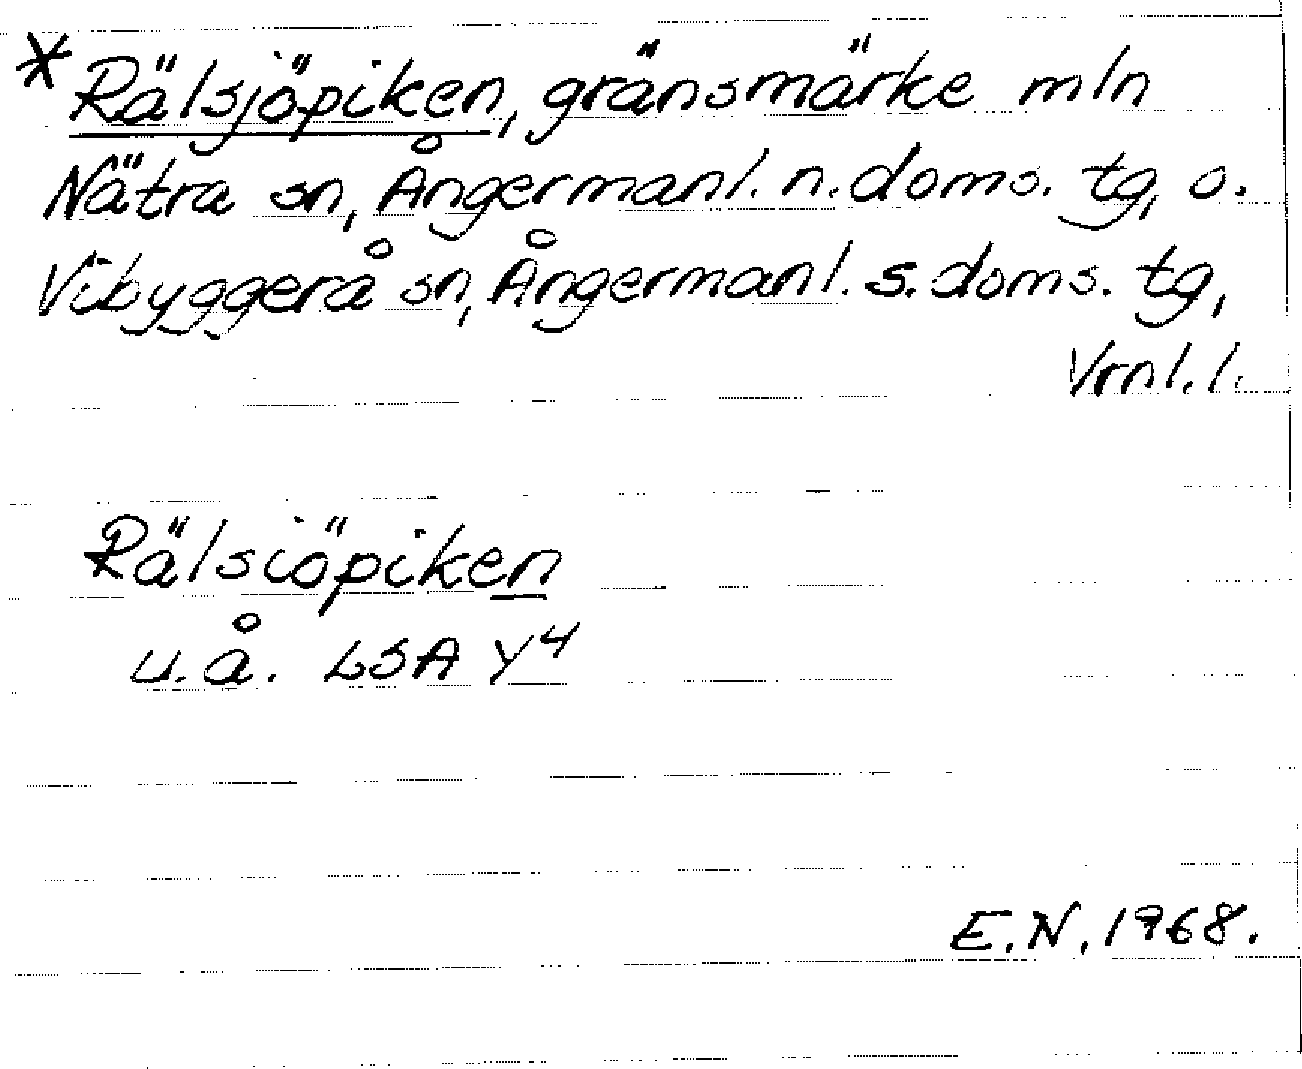 * Rälsjöpiken, gränsmärke mln
Nätra sn, Ångermanl. n. doms. tg, o.
Vibyggerå sn, Ångermanl. s. doms. tg,
Vrnl. l.
Rälsiöpiken
u.å. LSA Y4
E.N. 1968.